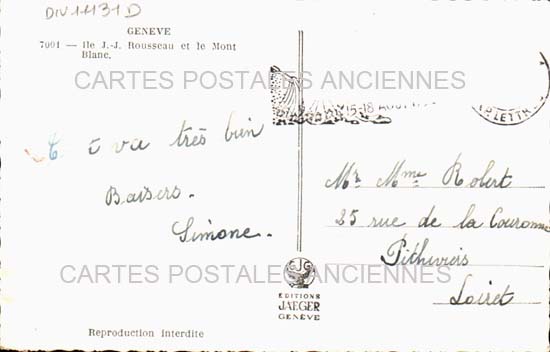 DIV11131D
GENEVE
7001 — Ile J.-J. Rousseau et le Mont
Blanc.
CARTES POSTALES ANCIENNES
15-18 AOUT
LETTR
va très bien
Baisers.
Simone.
Mr Mme Robert
25 rue de la Couronne
Pithiviers
Loiret
CARTES POSTALES ANCIENNES
EDITIONS
JAEGER
GENÈVE
Reproduction interdite